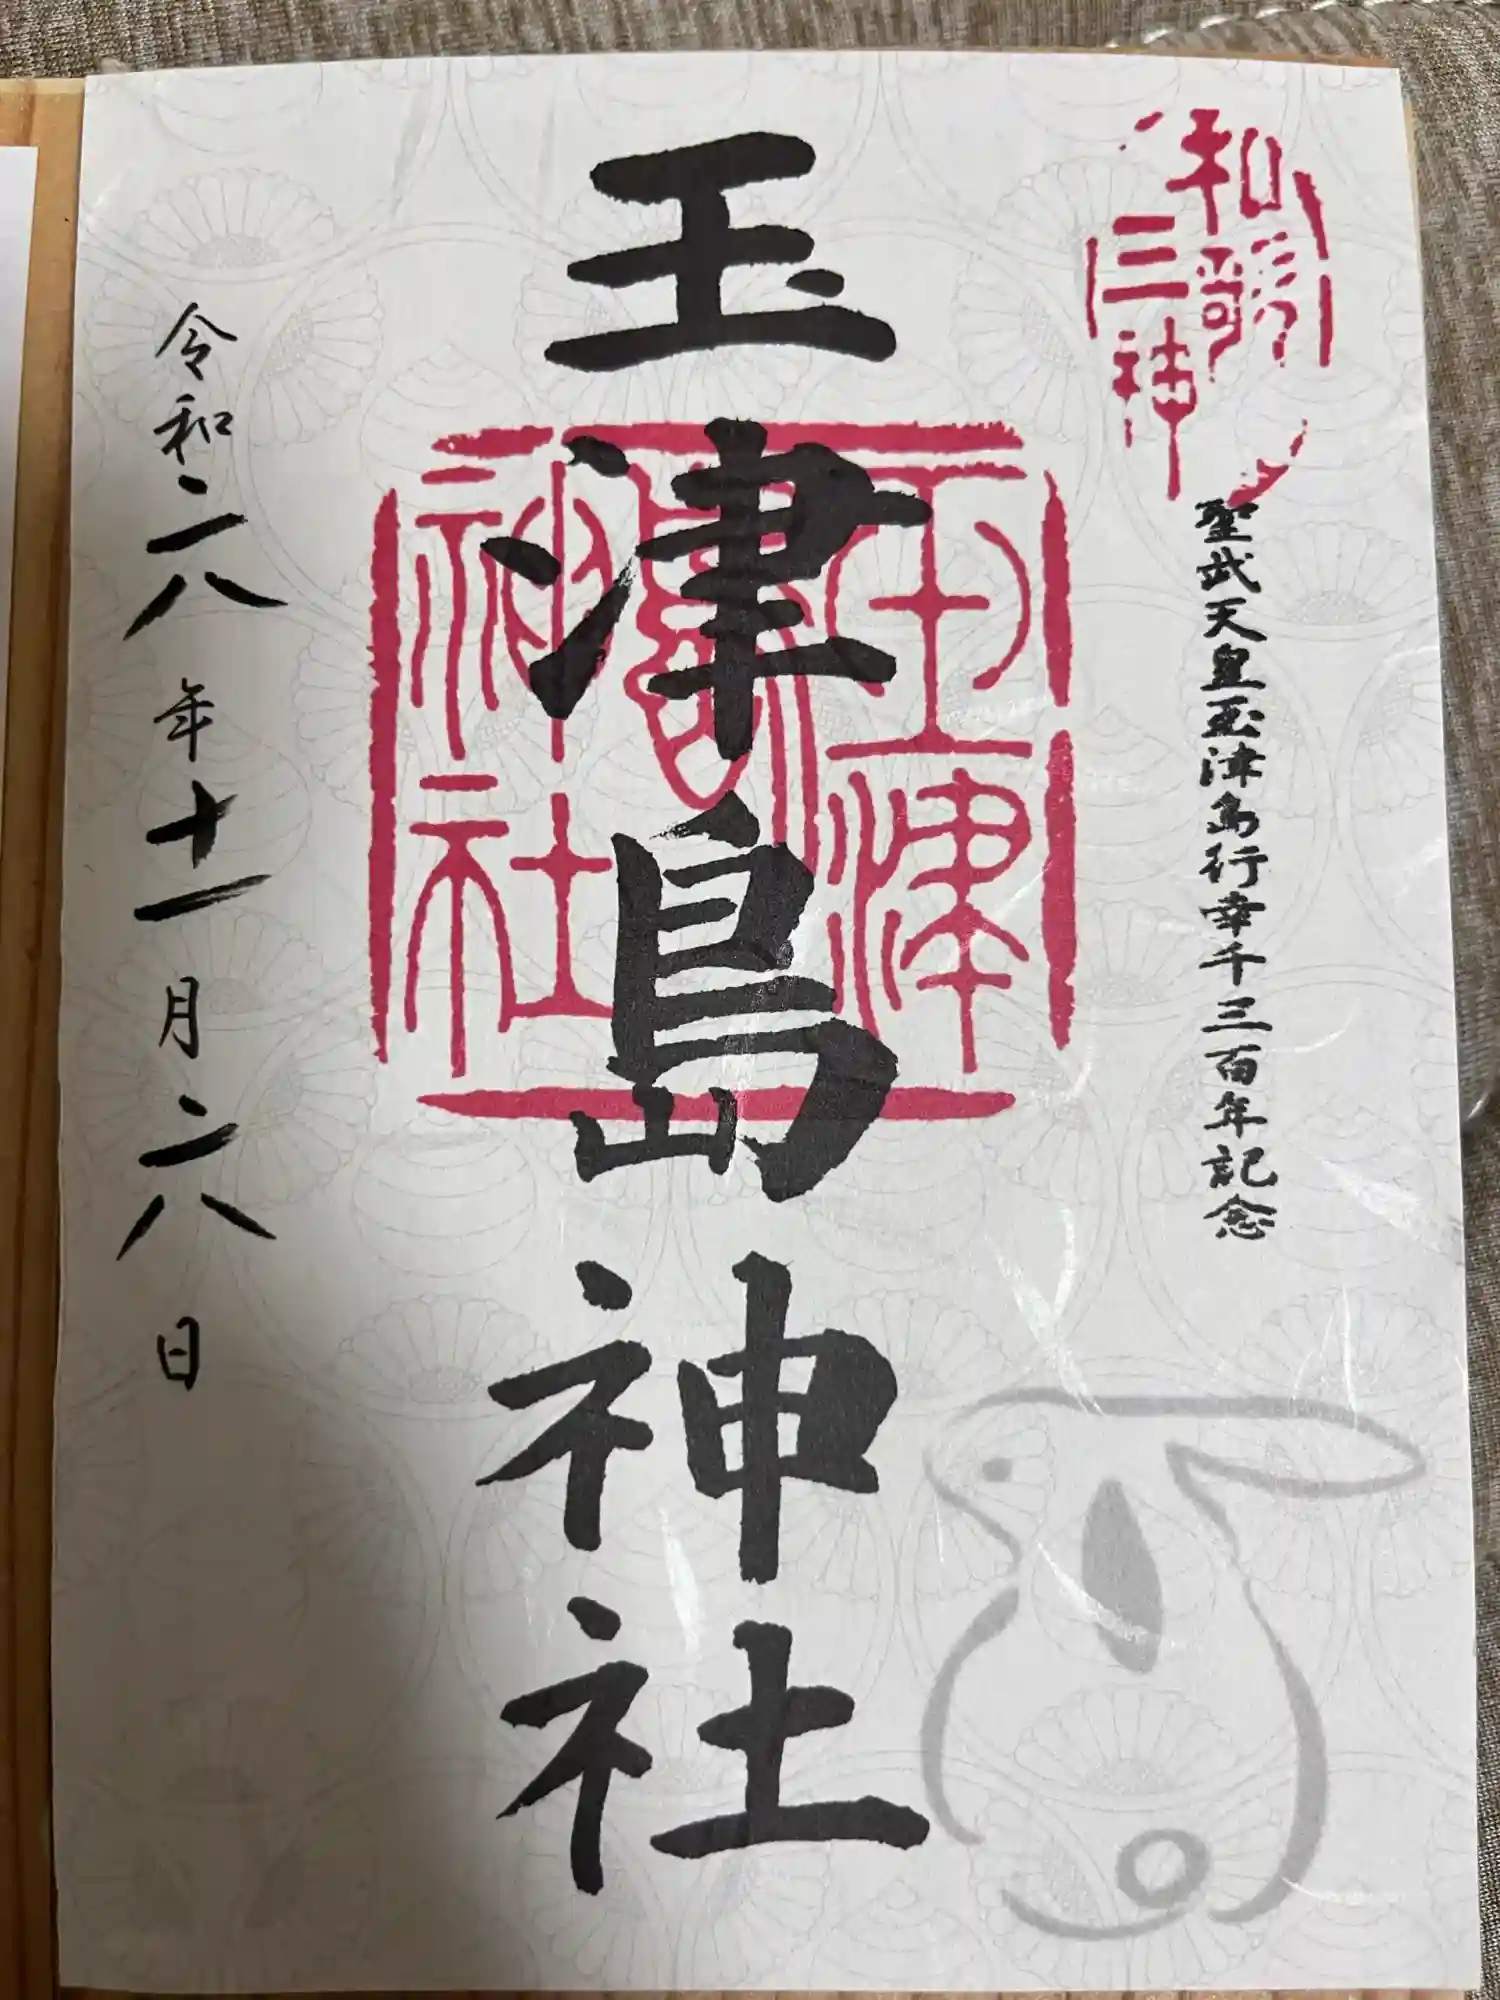 和歌
三神
聖武天皇玉津島行幸千三百年記念
玉津島神社
玉津
島
神社
令和六年十一月六日